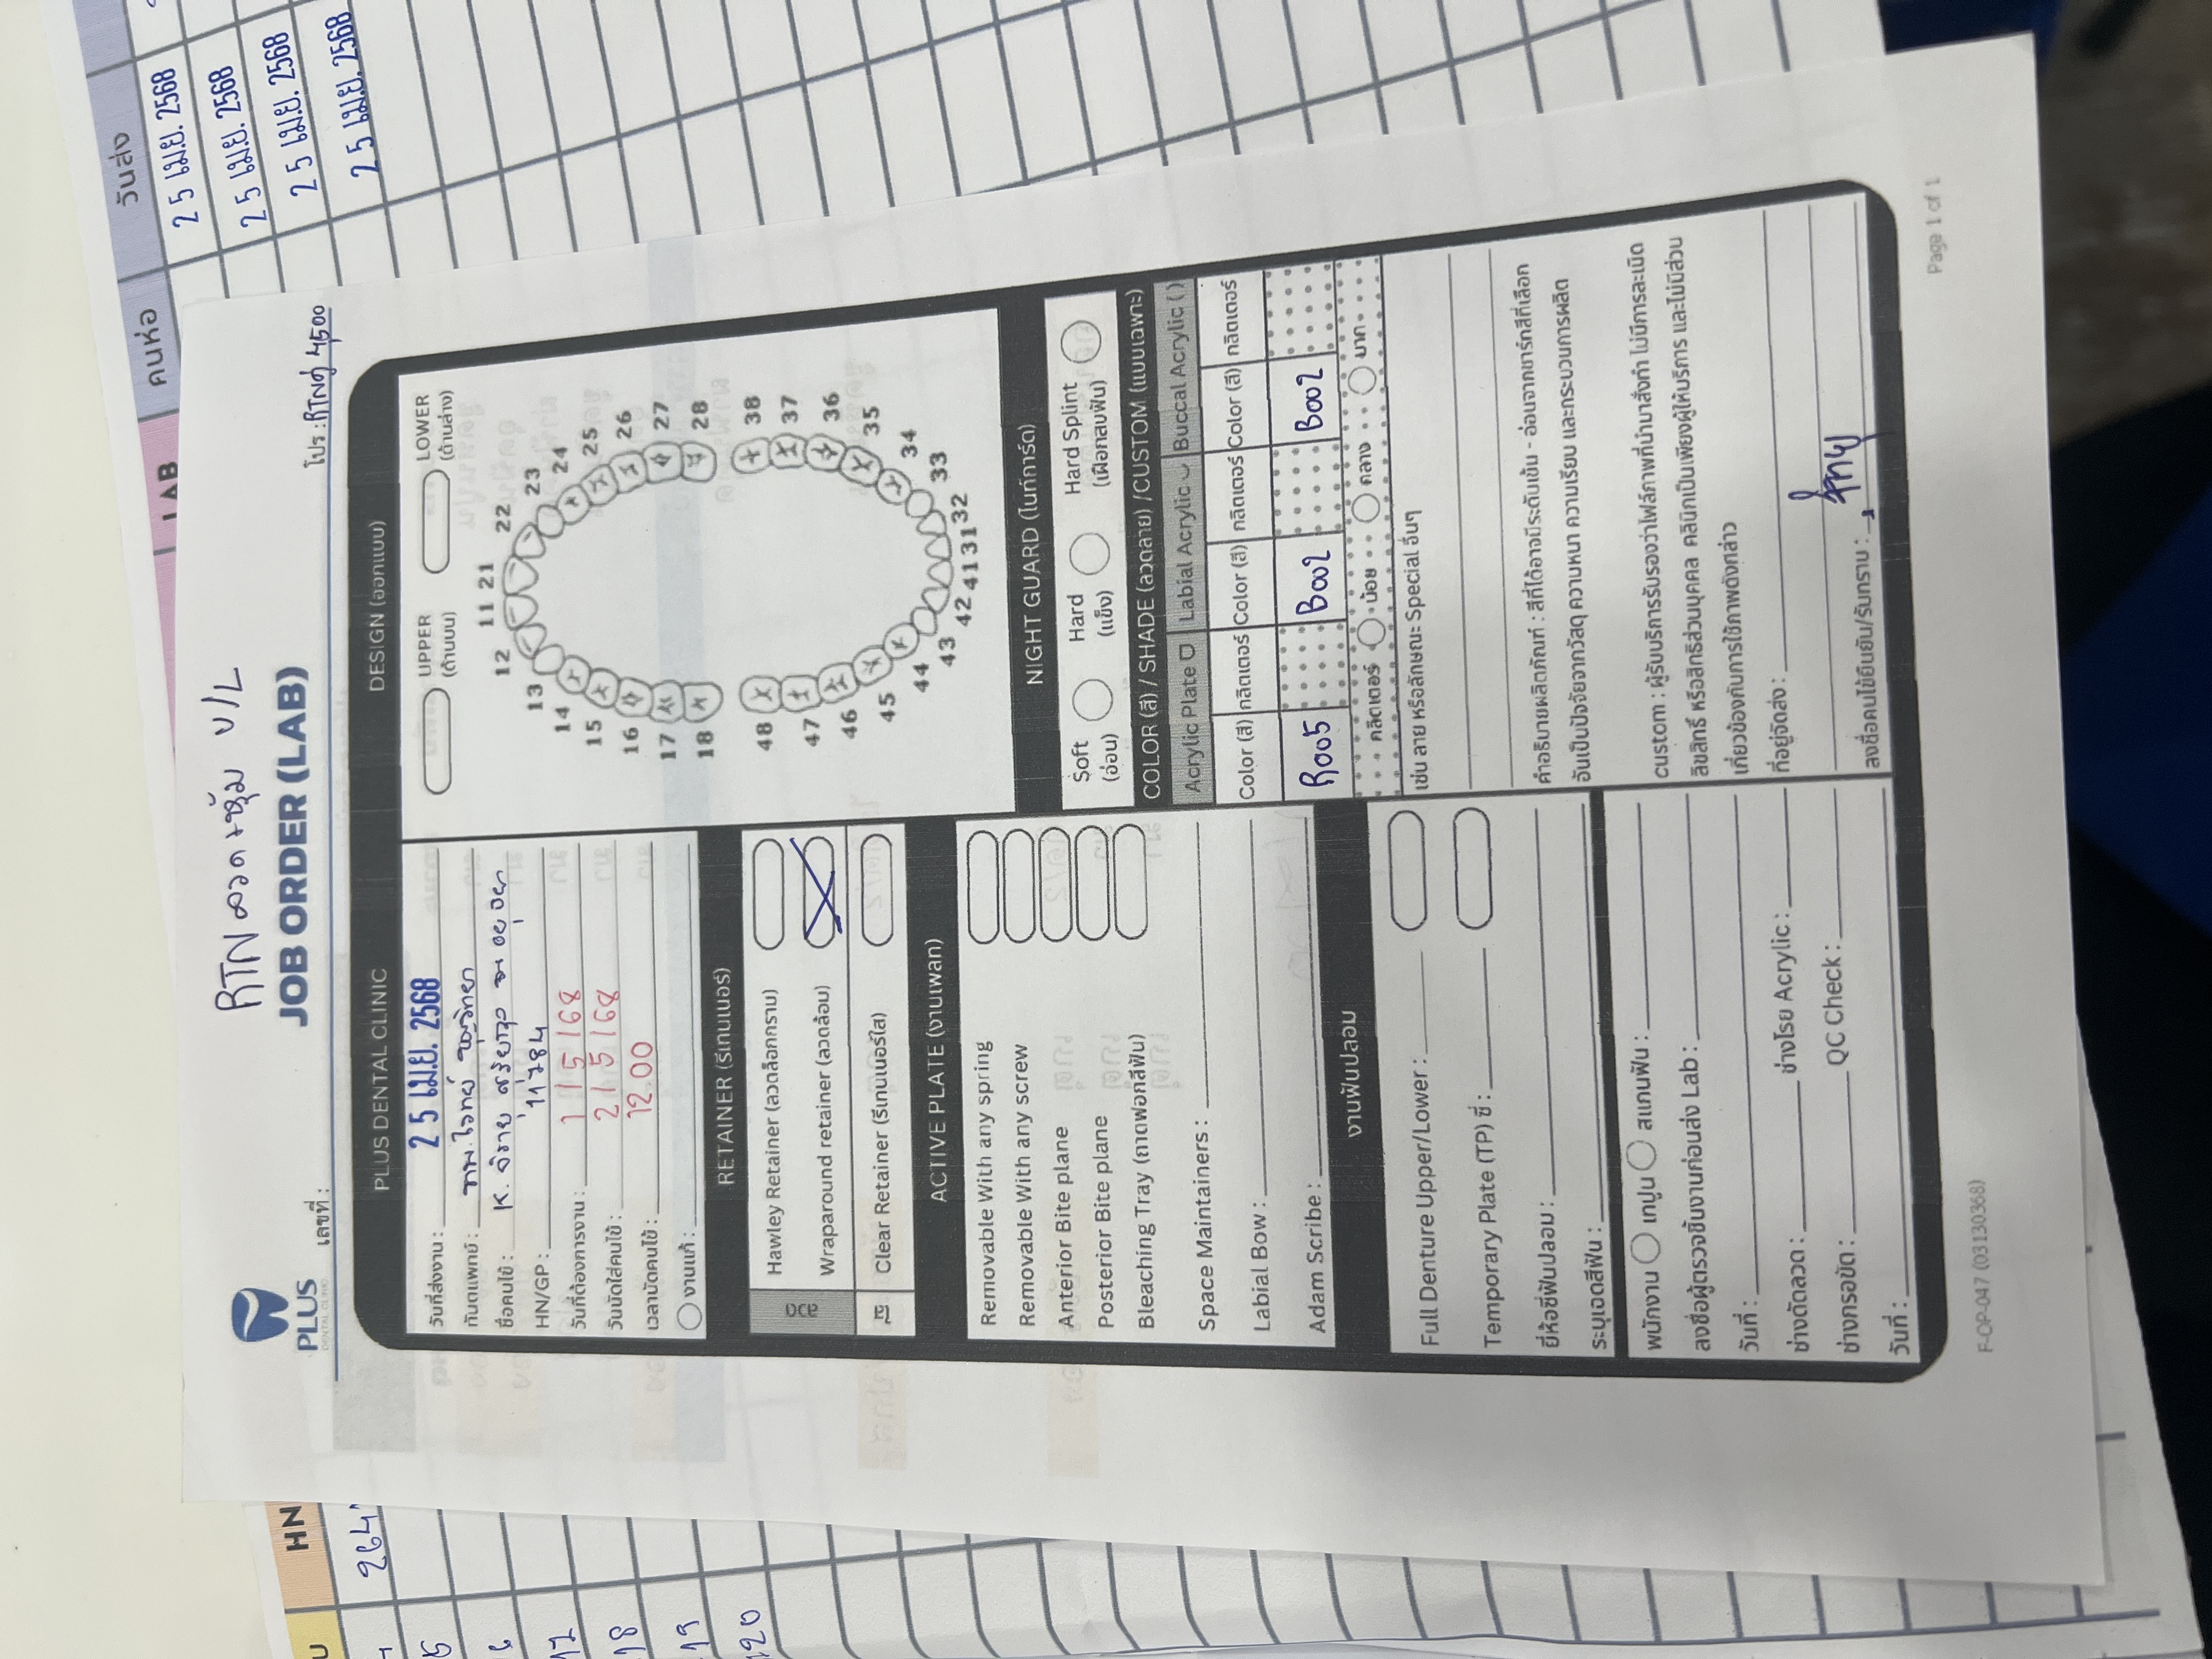 RTN ลวด+หุ้ม U/L
PLUS
DENTAL CLINIC
JOB ORDER (LAB)
เลขที่ :
โปร : RTNคู่ 4500
PLUS DENTAL CLINIC
วันที่ส่งงาน : 25 เม.ย. 2568
ทันตแพทย์ :
ชื่อคนไข้ : K.
HN/GP : 11784
วันที่ต้องการงาน : 1/5/68
วันนัดใส่คนไข้ : 2/5/68
เวลานัดคนไข้ : 12.00
งานแก้ :
RETAINER (รีเทนเนอร์)
ลวด
Hawley Retainer (ลวดล็อกกราม)
Wraparound retainer (ลวดล้อม)
ใส
Clear Retainer (รีเทนเนอร์ใส)
ACTIVE PLATE (งานเพลท)
Removable With any spring
Removable With any screw
Anterior Bite plane
Posterior Bite plane
Bleaching Tray (ถาดฟอกสีฟัน)
Space Maintainers :
Labial Bow :
Adam Scribe :
งานฟันปลอม
Full Denture Upper/Lower :
Temporary Plate (TP) ซี่ :
ยี่ห้อซี่ฟันปลอม :
ระบุเฉดสีฟัน :
พนักงาน เทปูน สแกนฟัน :
ลงชื่อผู้ตรวจชิ้นงานก่อนส่ง Lab :
วันที่ :
ช่างดัดลวด : ช่างโรย Acrylic :
ช่างกรอขัด : QC Check :
วันที่ :
DESIGN (ออกแบบ)
UPPER
(ด้านบน)
LOWER
(ด้านล่าง)
11 21
12 22
13 23
14 24
15 25
16 26
17 27
18 28
48 38
47 37
46 36
45 35
44 34
43 33
42 41 31 32
NIGHT GUARD (ไนท์การ์ด)
Soft
(อ่อน)
Hard
(แข็ง)
Hard Splint
(เฝือกสบฟัน)
COLOR (สี) / SHADE (ลวดลาย) /CUSTOM (แบบเฉพาะ)
Acrylic Plate Labial Acrylic Buccal Acrylic ( )
Color (สี) กลิตเตอร์ Color (สี) กลิตเตอร์ Color (สี) กลิตเตอร์
R005 B002 B002
กลิตเตอร์ น้อย กลาง มาก
เช่น ลาย หรือลักษณะ Special อื่นๆ
คำอธิบายผลิตภัณฑ์ : สีที่ได้อาจมีระดับเข้ม - อ่อนจากชาร์ทสีที่เลือก
อันเป็นปัจจัยจากวัสดุ ความหนา ความเรียบ และกระบวนการผลิต
custom : ผู้รับบริการรับรองว่าไฟล์ภาพที่นำมาสั่งทำ ไม่มีการละเมิด
ลิขสิทธิ์ หรือสิทธิส่วนบุคคล คลินิกเป็นเพียงผู้ให้บริการ และไม่มีส่วน
เกี่ยวข้องกับการใช้ภาพดังกล่าว
ที่อยู่จัดส่ง :
ลงชื่อคนไข้ยืนยัน/รับทราบ :
F-OP-047 (03130368)
Page 1 of 1
LAB คนห่อ วันส่ง
25 เม.ย. 2568
25 เม.ย. 2568
25 เม.ย. 2568
25 เม.ย. 2568
HN
264
17
18
19
20